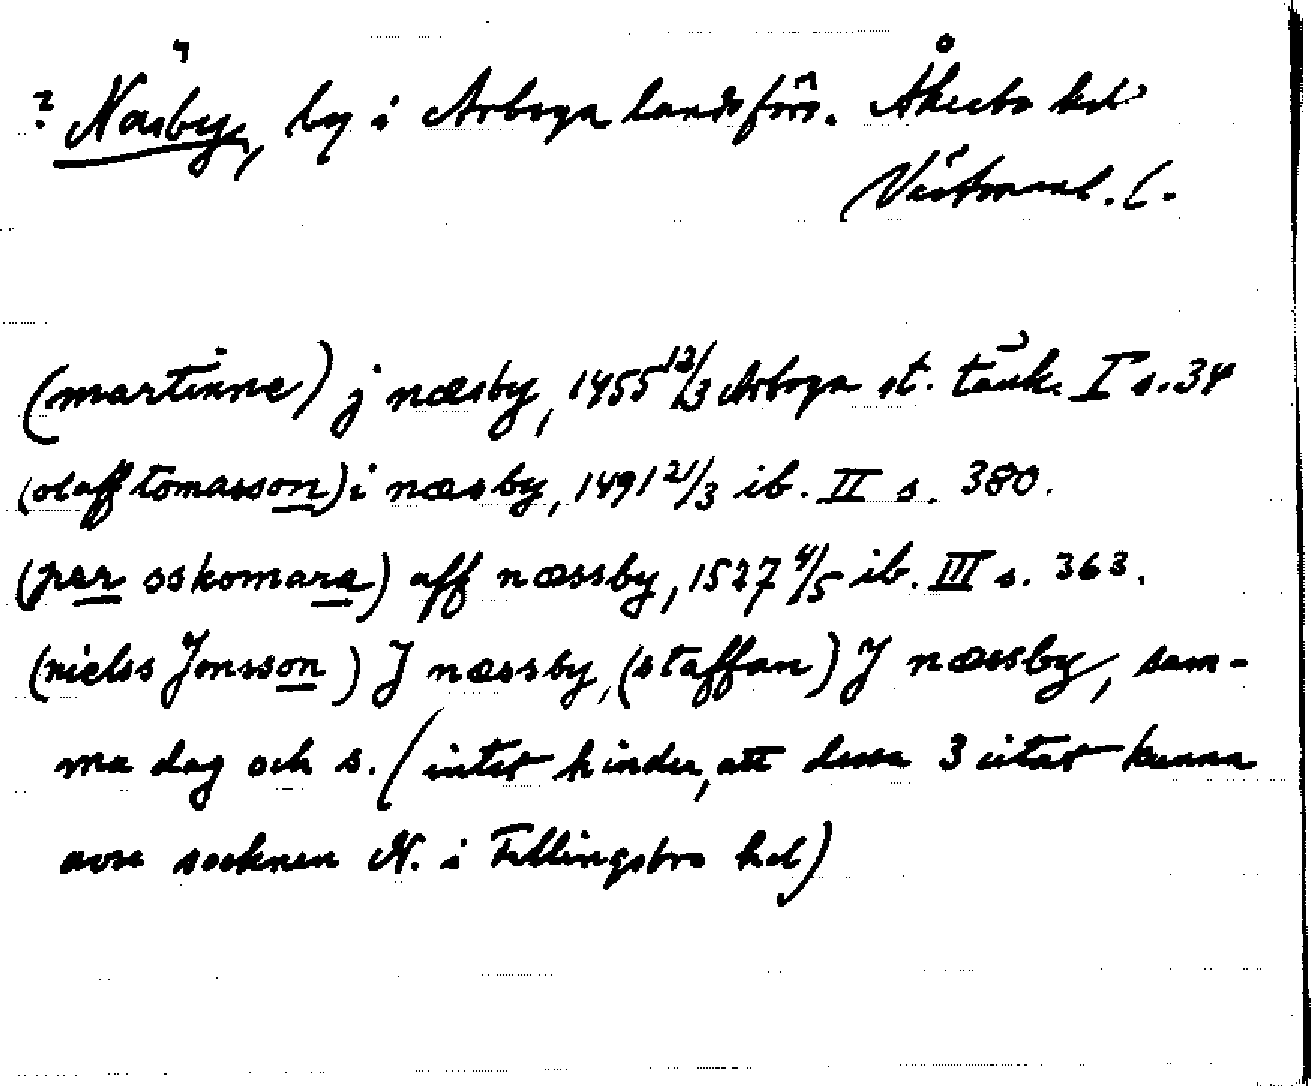 ? Näsby, by i Arboga landsförs. Åkerbo hd
Västmanl. l.
(martinne) j næsby, 1455 12/3 Arboga st. tänk. I s. 34
(olaff tomasson) i næsby, 1491 21/3 ib. II s. 380.
(per sskomare) aff næssby, 1527 4/5 ib. III s. 363.
(nielss Jonsson) J næssby, (staffan) J næssby, sam-
ma dag och s. (intet hinder, att dessa 3 citat kunna
avse socknen N. i Fellingsbro hd)